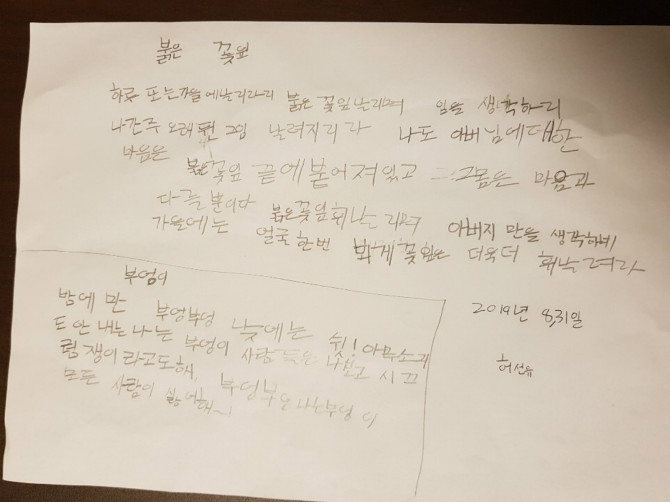 붉은 꽃잎
하루 또는가을에날리라리 붉은 꽃잎날리며 임을 생각하리
나간주 오래 편 그임 날려지리라 나도 아빠님에대한
마음은
붉은꽃잎 끝에붙어져있고 그 마음과
다를 뿐이다
가을에는 붉은꽃잎휘날리며 아버지만을 생각하네
얼굴한번 봐게꽃잎은 더욱더 휘날려라
부엉이
밤에만 부엉부엉 낮에는 쉿! 아무소리
도 안 내는 나는 부엉이 사람들은 나보고 시끄
럼쟁이라고도해,
모든 사람이 싫어해~! 부엉부엉나는부엉이
2019년 8,31일
허선유